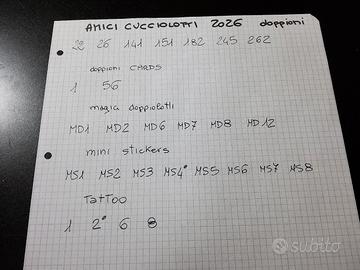 AMICI CUCCIOLOTTI 2026 doppioni
22 26 141 151 182 245 262
doppioni CARDS
1 56
magia doppiolotti
MD1 MD2 MD6 MD7 MD8 MD12
mini stickers
MS1 MS2 MS3 MS4* MS5 MS6 MS7 MS8
TATTOO
1 2* 6 8
subito